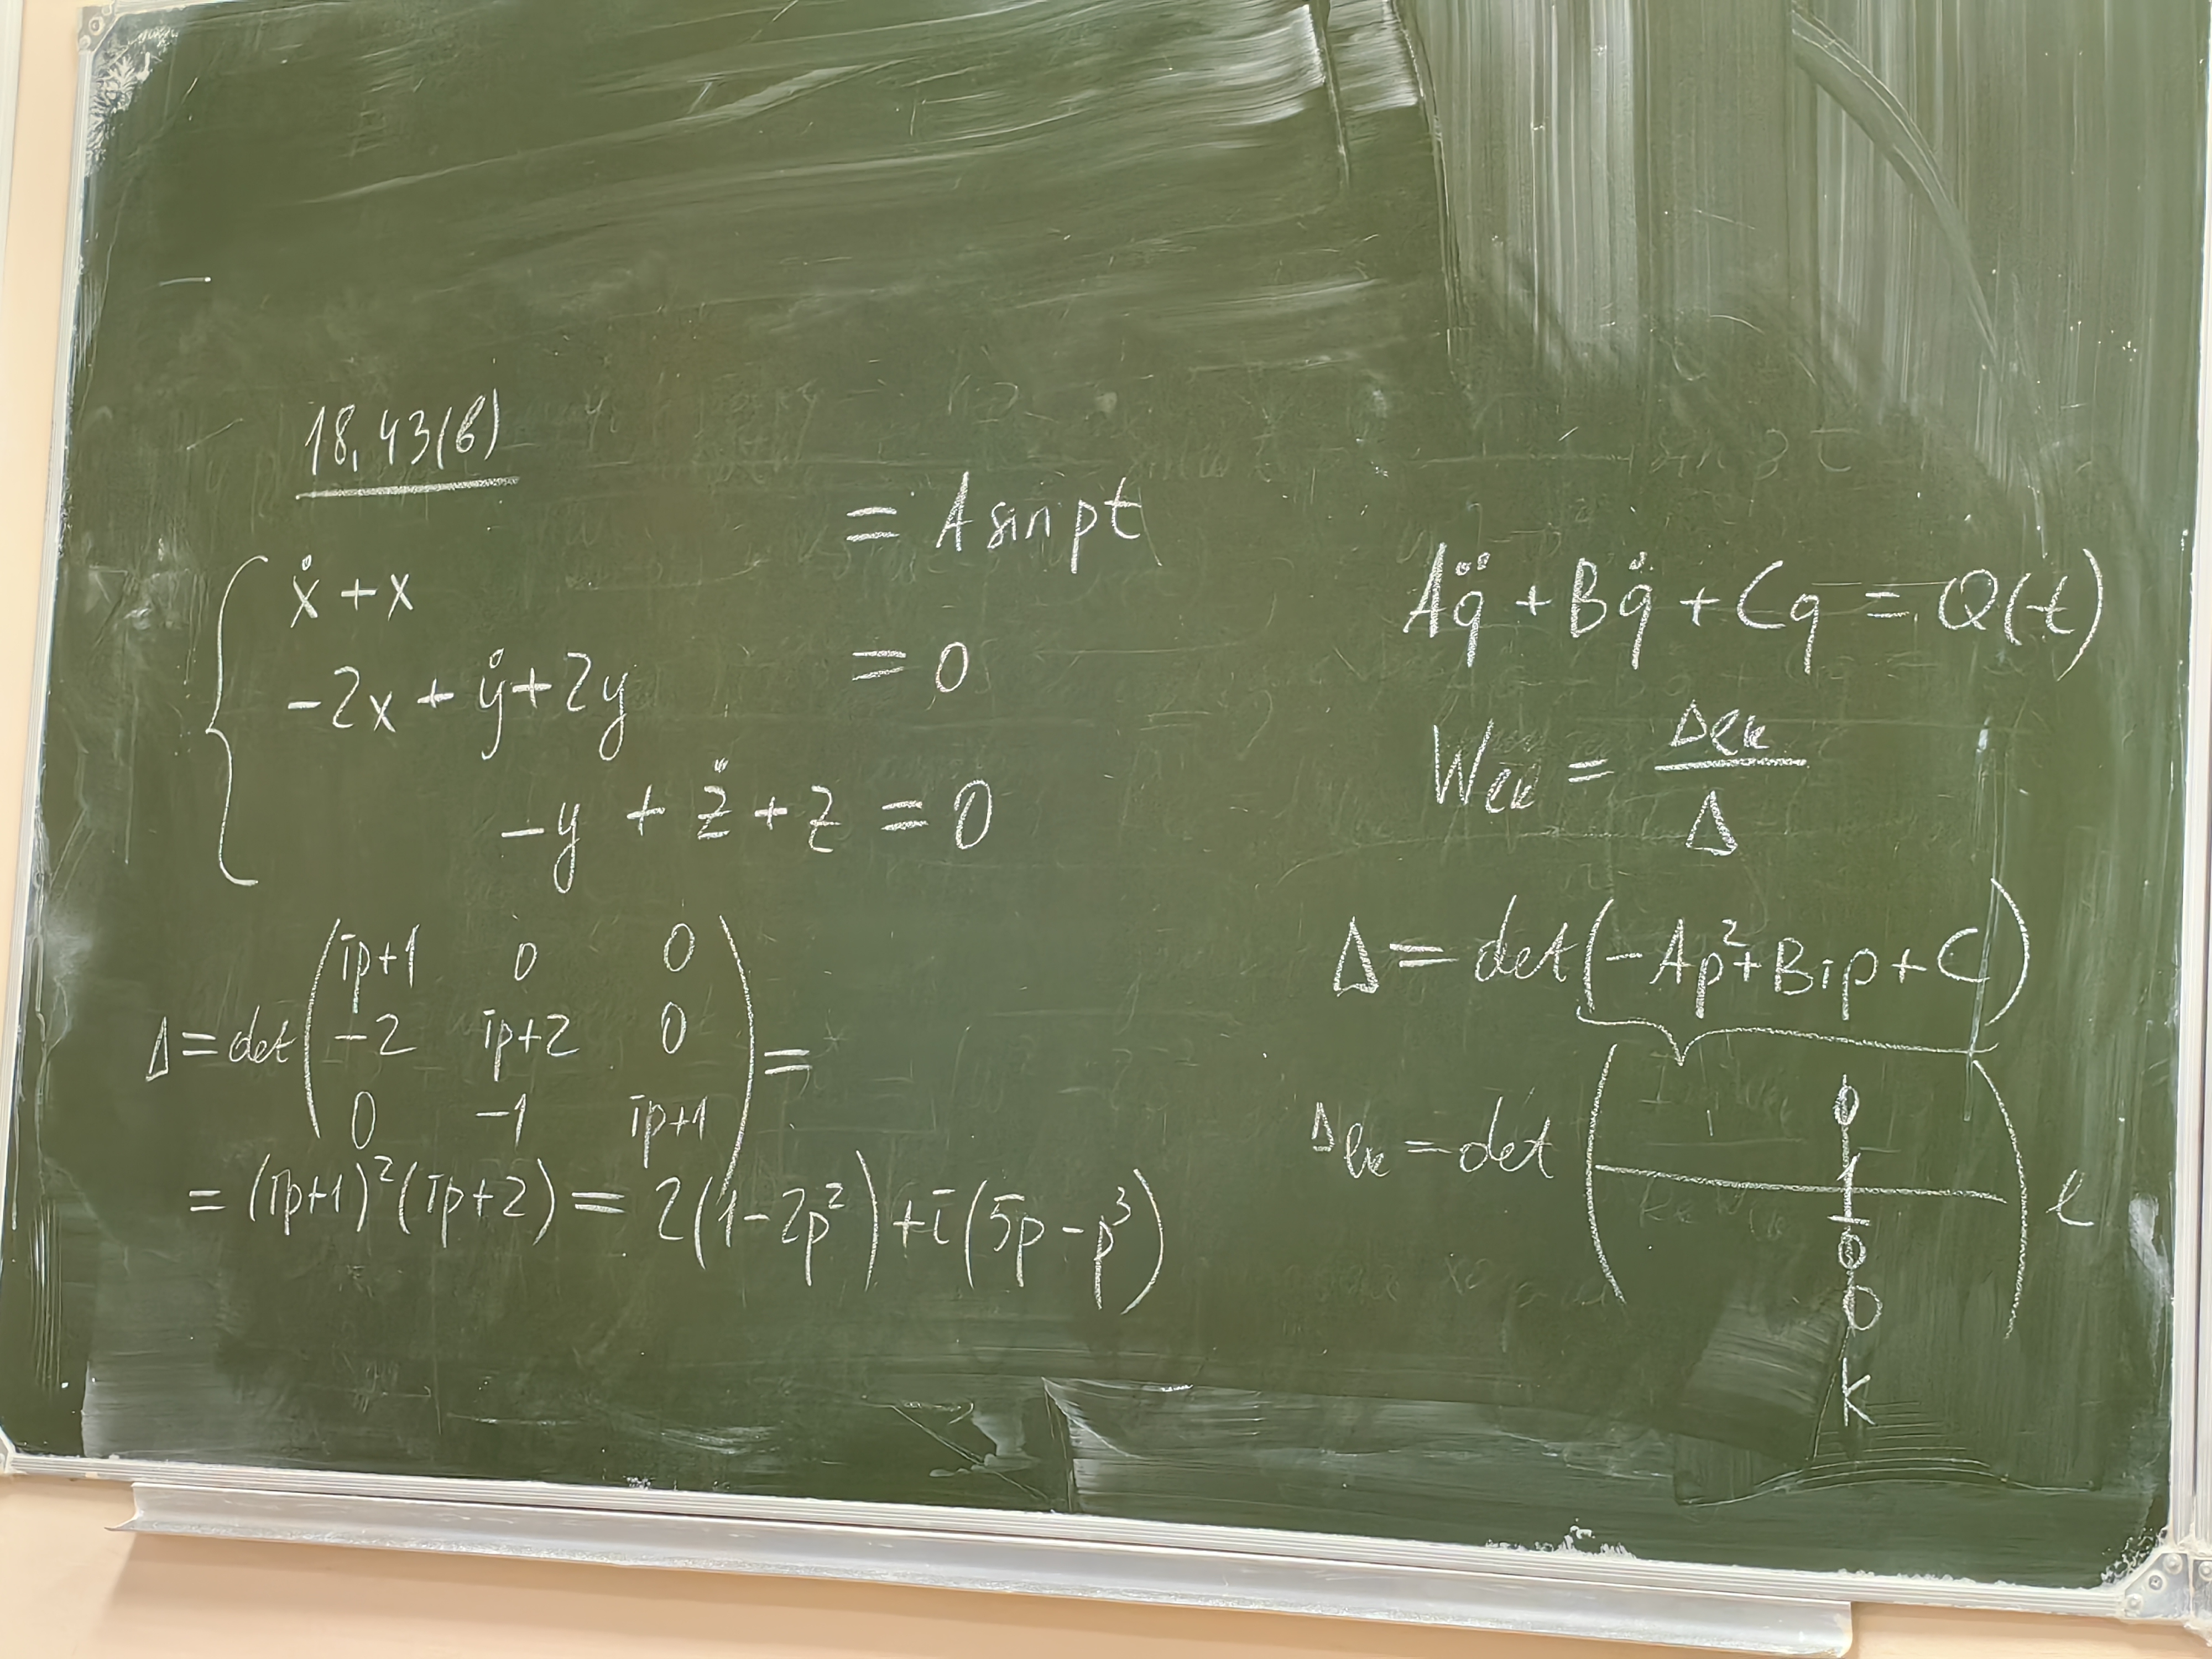 18.43(в)
ẋ + x = A sin pt
-2x + ẏ + 2y = 0
-y + ż + z = 0
Δ = det ( ip+1 0 0
-2 ip+2 0
0 -1 ip+1 ) =
= (ip+1)²(ip+2) = 2(1-2p²) + i(5p-p³)
Aq̈ + Bq̇ + Cq = Q(t)
Wₗₖ = Δₗₖ / Δ
Δ = det(-Ap² + Bip + C)
Δₗₖ = det ( 0
1 ) l
0
0
k